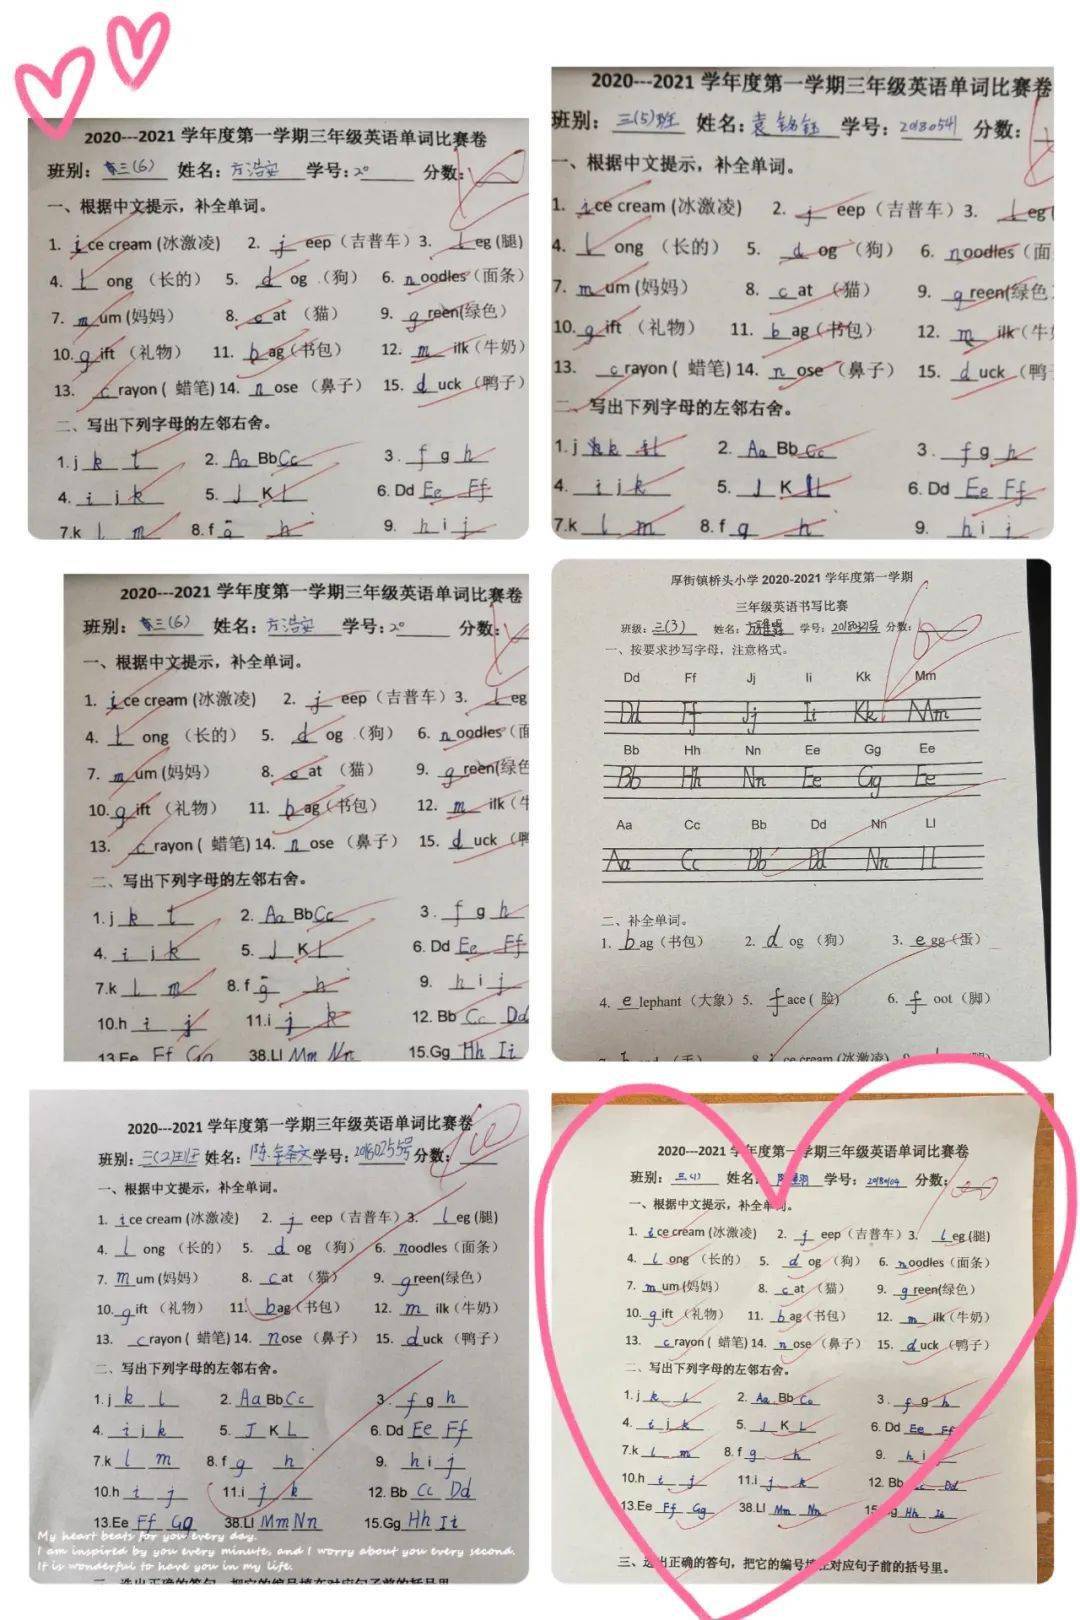 2020---2021 学年度第一学期三年级英语单词比赛卷
班别: 三(6) 姓名: 方浩安 学号: 20 分数:
一、根据中文提示，补全单词。
1. ice cream (冰激凌) 2. jeep（吉普车）3. leg (腿)
4. long （长的） 5. dog （狗） 6. noodles（面条）
7. mum (妈妈） 8. cat （猫） 9. green(绿色）
10. gift （礼物） 11. bag（书包） 12. milk（牛奶）
13. crayon ( 蜡笔) 14. nose （鼻子） 15. duck （鸭子）
二、写出下列字母的左邻右舍。
1. j k t 2. Aa Bb Cc 3. f g h
4. i j k 5. J K L 6. Dd Ee Ff
7.k l m 8. f g h 9. h i j
2020---2021 学年度第一学期三年级英语单词比赛卷
班别: 三(5)班 姓名: 袁铭钰 学号: 20180541 分数:
一、根据中文提示，补全单词。
1. ice cream (冰激凌) 2. jeep（吉普车）3. leg
4. long （长的） 5. dog （狗） 6. noodles（面
7. mum (妈妈） 8. cat （猫） 9. green(绿色
10. gift （礼物） 11. bag（书包） 12. milk（牛
13. crayon ( 蜡笔) 14. nose （鼻子） 15. duck （鸭
二、写出下列字母的左邻右舍。
1. j k 2. Aa Bb Cc 3. f g h
4. i j k 5. J K L 6. Dd Ee Ff
7.k l m 8. f g h 9. h i j
2020---2021 学年度第一学期三年级英语单词比赛卷
班别: 三(6) 姓名: 方浩安 学号: 20 分数:
一、根据中文提示，补全单词。
1. ice cream (冰激凌) 2. jeep（吉普车）3. leg
4. long （长的） 5. dog （狗） 6. noodles（面
7. mum (妈妈） 8. cat （猫） 9. green(绿色
10. gift （礼物） 11. bag（书包） 12. milk（牛
13. crayon ( 蜡笔) 14. nose （鼻子） 15. duck （鸭
二、写出下列字母的左邻右舍。
1. j k t 2. Aa Bb Cc 3. f g h
4. i j k 5. J K L 6. Dd Ee Ff
7.k l m 8. f g h 9. h i j
10.h i j 11.i j k 12. Bb Cc Dd
13.Ee Ff Gg 38.Ll Mm Nn 15.Gg Hh Ii
厚街镇桥头小学 2020-2021 学年度第一学期
三年级英语书写比赛
班级: 三(3) 姓名: 学号: 分数: 100
一、按要求抄写字母，注意格式。
Dd Ff Jj Ii Kk Mm
Dd Ff Jj Ii Kk Mm
Bb Hh Nn Ee Gg Ee
Bb Hh Nn Ee Gg Ee
Aa Cc Bb Dd Nn Ll
Aa Cc Bb Dd Nn Ll
二、补全单词。
1. bag（书包） 2. dog （狗） 3. egg（蛋）
4. elephant（大象）5. face（ 脸） 6. foot（脚）
ice cream (冰激凌)
2020---2021 学年度第一学期三年级英语单词比赛卷
班别: 三(2)班 姓名: 陈 学号: 20180255号 分数: 100
一、根据中文提示，补全单词。
1. ice cream (冰激凌) 2. jeep（吉普车）3. leg (腿)
4. long （长的） 5. dog （狗） 6. noodles（面条）
7. mum (妈妈） 8. cat （猫） 9. green(绿色）
10. gift （礼物） 11. bag（书包） 12. milk（牛奶）
13. crayon ( 蜡笔) 14. nose （鼻子） 15. duck （鸭子）
二、写出下列字母的左邻右舍。
1. j k l 2. Aa Bb Cc 3. f g h
4. i j k 5. J K L 6. Dd Ee Ff
7.k l m 8. f g h 9. h i j
10.h i j 11.i j k 12. Bb Cc Dd
13.Ee Ff Gg 38.Ll Mm Nn 15.Gg Hh Ii
My heart beats for you every day.
I am inspired by you every minute, and I worry about you every second.
It is wonderful to have you in my life.
2020---2021 学年度第一学期三年级英语单词比赛卷
班别: 三(1) 姓名: 学号: 20180104 分数: 100
一、根据中文提示，补全单词。
1. ice cream (冰激凌) 2. jeep（吉普车）3. leg (腿)
4. long （长的） 5. dog （狗） 6. noodles（面条）
7. mum (妈妈） 8. cat （猫） 9. green(绿色）
10. gift （礼物） 11. bag（书包） 12. milk（牛奶）
13. crayon ( 蜡笔) 14. nose （鼻子） 15. duck （鸭子）
二、写出下列字母的左邻右舍。
1. j k l 2. Aa Bb Cc 3. f g h
4. i j k 5. J K L 6. Dd Ee Ff
7.k l m 8. f g h 9. h i
10.h i j 11.i j k 12. Bb Cc Dd
13.Ee Ff Gg 38.Ll Mm Nn 15. Hh Ii
三、选出正确的答句，把它的编号填在对应句子前的括号里。